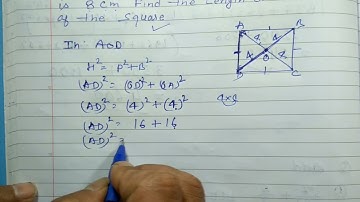 is 8 cm Find the Length
of the Square
In AOD
H² = P² + B²
(AD)² = (OD)² + (OA)²
(AD)² = (4)² + (4)²
(AD)² = 16 + 16
(AD)² =
A B
4 4
O
4 4
D C